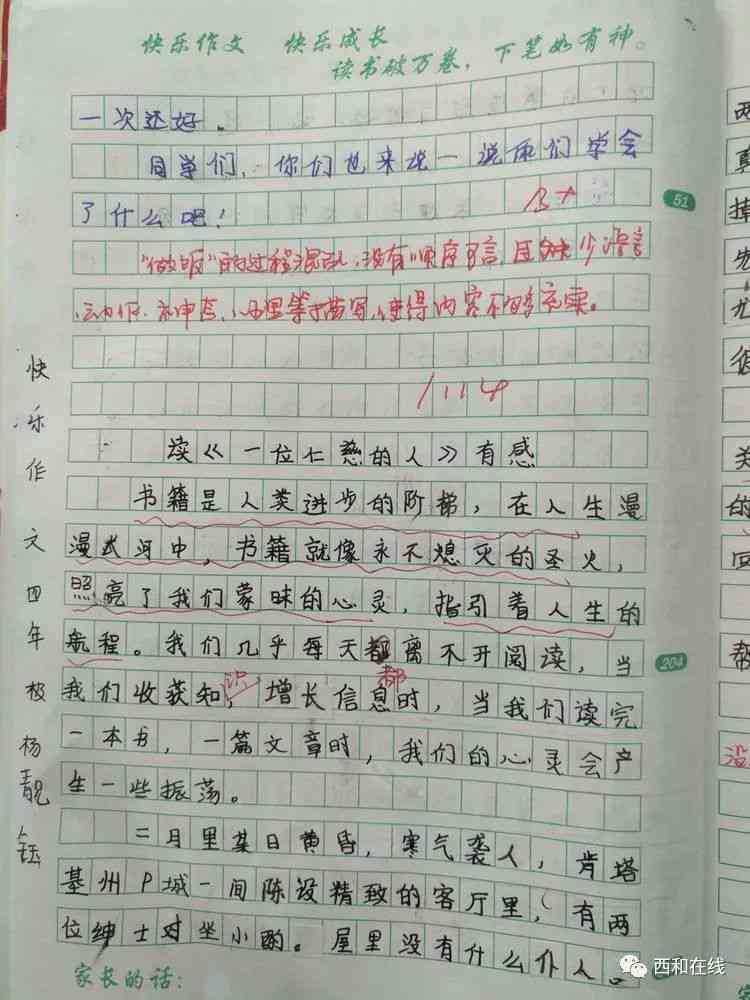 快乐作文 快乐成长
读书破万卷，下笔如有神。
一次还好。
同学们，你们也来说一说你们学会
了什么吧！
B+
51
"做饭"的过程混乱，没有顺序可言，且缺少语言
、动作、神态、心理等描写，使得内容不够充实。
11.4
读《一位仁慈的人》有感
书籍是人类进步的阶梯，在人生漫
漫长河中，书籍就像永不熄灭的圣火，
照亮了我们蒙昧的心灵，指引着人生的
航程。我们几乎每天都离不开阅读，当
204
我们收获知识，增长信息时，当我们读完
都
一本书，一篇文章时，我们的心灵会产
生一些振荡。
二月里某日黄昏，寒气袭人，肯塔
基州P城一间陈设精致的客厅里，有两
位绅士对坐小酌。屋里没有什么仆人。
家长的话：
快乐作文四年级 杨靓钰
西和在线